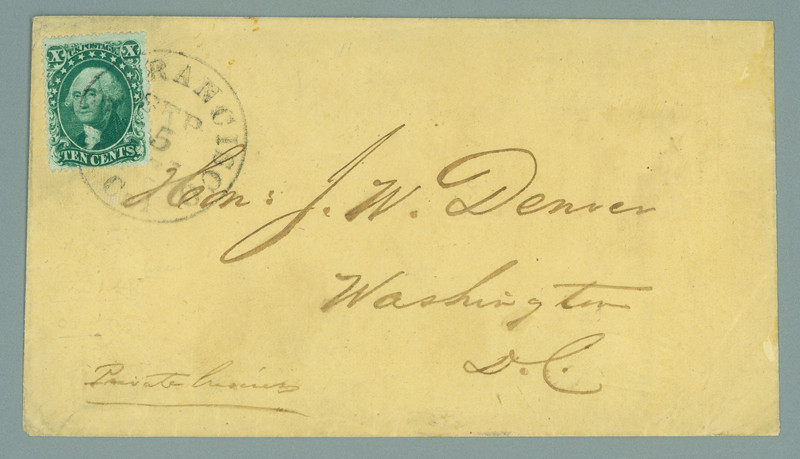 X U.S. POSTAGE X
TEN CENTS
FRANCISCO
SEP
5
Hon: J. W. Denver
Washington
D.C.
Private